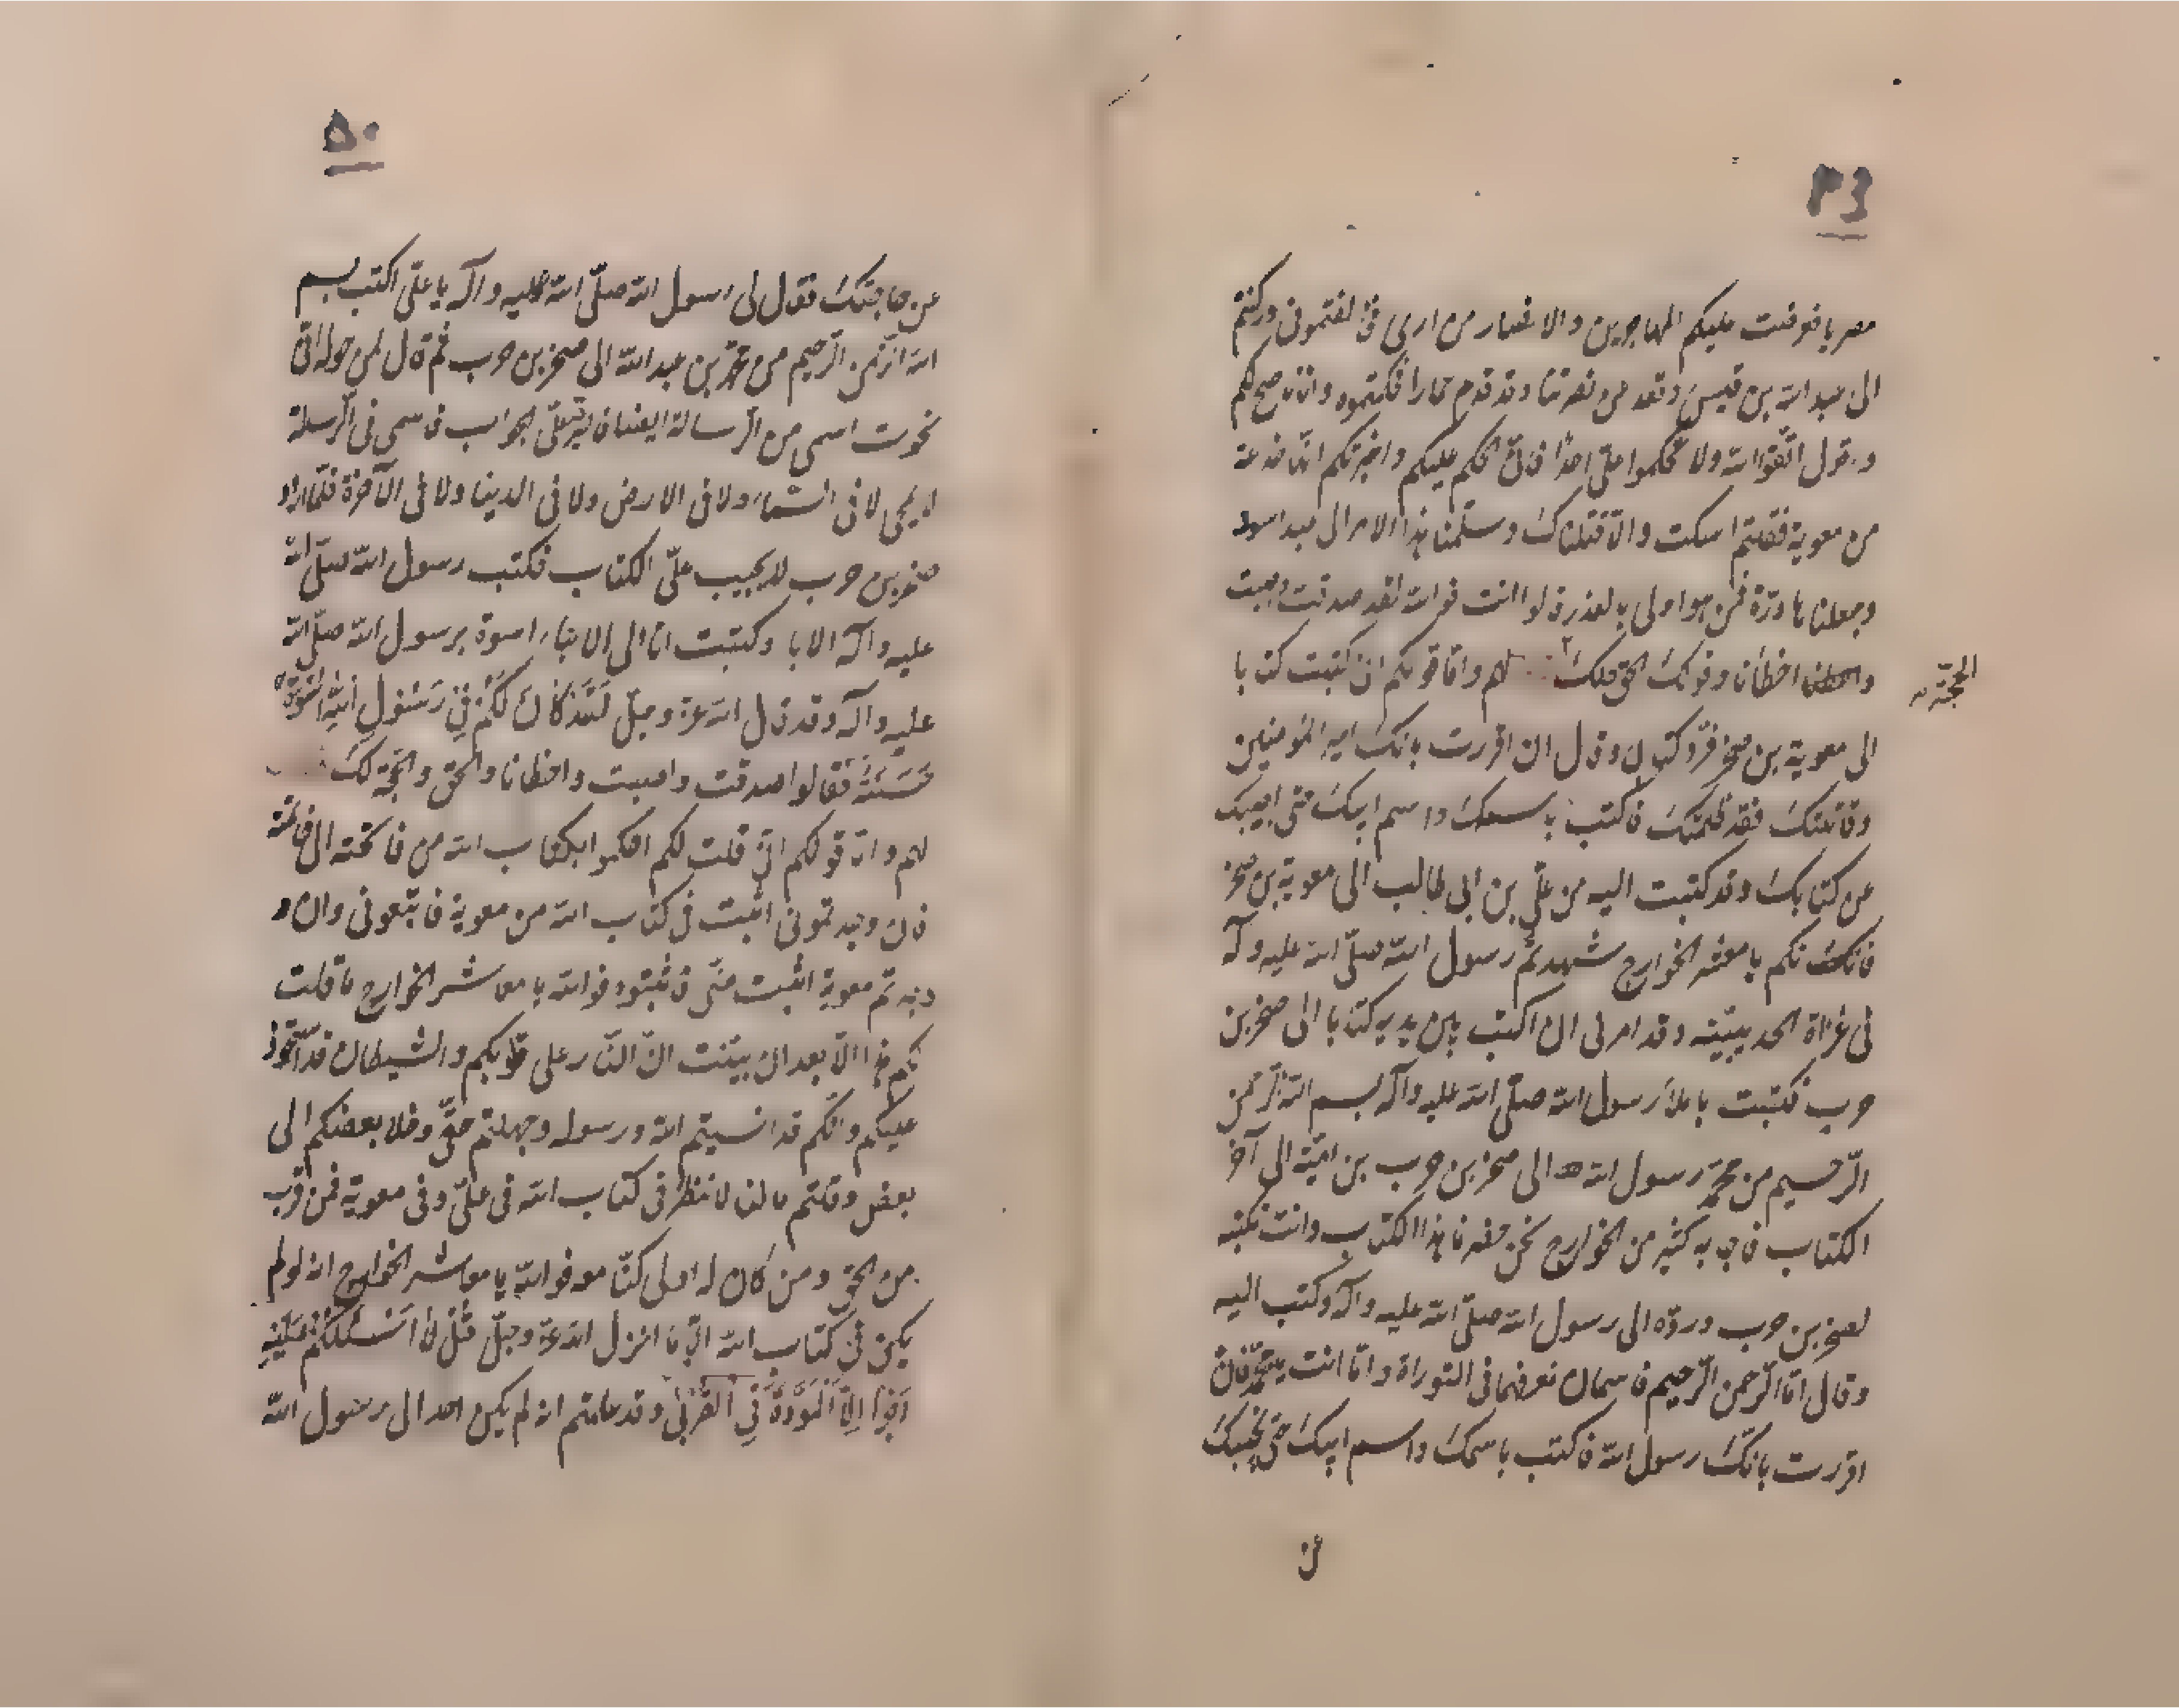 ٤٣
مصر با فوفت عليكم المهاجرين والانصار من اربى فى لفتمونى وركنتم
الى عبد الله بن قيس وقعد من نصرتنا وقد قدم عمارا فكتبتموه وانا ناصح لكم
واقول اتقوا الله ولا تحكموا علىّ احدا فانّ الحكم عليكم واخبرتكم انّها خدعة
من معوية فقلتم اسكت والّا قتلناك وسلّمنا هذا الامر الى عبد اسود
وجعلنا مادّة فمن هو اولى بالعذر قالوا انت فوالله لقد صدقت واصبت
واخطأنا وقولك الحقّ لهم وامّا قولكم انّى كتبت كتابا
الحجّة
الى معوية بن صخر كتابى وقال ان اقررت بانّك امير المؤمنين
وقاتلتك فقد ظلمتك فاكتب باسمك واسم ابيك حتى اجيبك
عن كتابك وقد كتبت اليه من علىّ بن ابى طالب الى معوية بن صخر
فانكم يا معشر الخوارج شهدتم رسول الله صلّى الله عليه وآله
فى غزاة الحديبيّة وقد امرنى ان اكتب بين يديه كتابا الى صخر بن
حرب فكتبت باملاء رسول الله صلّى الله عليه وآله بسم الله الرّحمن
الرّحيم من محمّد رسول الله الى صخر بن حرب بن اميّة الى آخر
الكتاب فاجابه كثير من الخوارج نحن حضرنا هذا الكتاب وانت تكتبه
لصخر بن حرب وردّه الى رسول الله صلّى الله عليه وآله وكتب اليه
وقال امّا الرّحمن الرّحيم فاسمان نعرفهما فى التوراة وامّا انت يا محمّد فان
اقررت بانّك رسول الله فاكتب باسمك واسم ابيك حتى نجيبك
عن
٥٠
عن حاجتك فقال لى رسول الله صلّى الله عليه وآله يا علىّ اكتب بسم
الله الرّحمن الرّحيم من محمّد بن عبد الله الى صخر بن حرب ثم قال لمن حوله انّى
محوت اسمى من الرّسالة ايضا الجواب فاسمى فى الرّسالة
لا يمحى لا فى السّماء ولا فى الارض ولا فى الدنيا ولا فى الآخرة فلمّا اراد
صخر بن حرب لا يجيب علىّ الكتاب فكتب رسول الله صلّى الله
عليه وآله الابا وكتبت انا الى الابناء اسوة برسول الله صلّى الله
عليه وآله وقد قال الله عزّ وجلّ لَقَدْ كَانَ لَكُمْ فِى رَسُولِ اللّٰهِ اُسْوَةٌ
حَسَنَةٌ فقالوا صدقت واصبت واخطأنا والحقّ والحجّة لك
لهم وامّا قولكم انّى قلت لكم احكموا بكتاب الله من فاتحته الى خاتمته
فان وجدتمونى اثبت فى كتاب الله من معوية فاتبعونى وان و
جدتم معوية اثبت منّى فاثبتوه فوالله يا معاشر الخوارج ما قلت
لكم هذا الّا بعد ان بيّنت انّ النّار على قلوبكم والشيطان قد استحوذ
عليكم وانّكم قد انسيتم الله ورسوله وجهلتم حقّى وخلا بعضكم الى
بعض وقلتم ما لنا لا ننظر فى كتاب الله فى علىّ وفى معوية فمن قرب
من الحق ومن كان له اولى كنّا معه فوالله يا معاشر الخوارج انه لو لم
يكن فى كتاب الله الّا ما انزل الله عزّ وجلّ قُلْ لَا اَسْئَلُكُمْ عَلَيْهِ
اَجْراً اِلّا الْمَوَدَّةَ فِى الْقُرْبٰى وقد علمتم انه لم يكن احد الى رسول الله